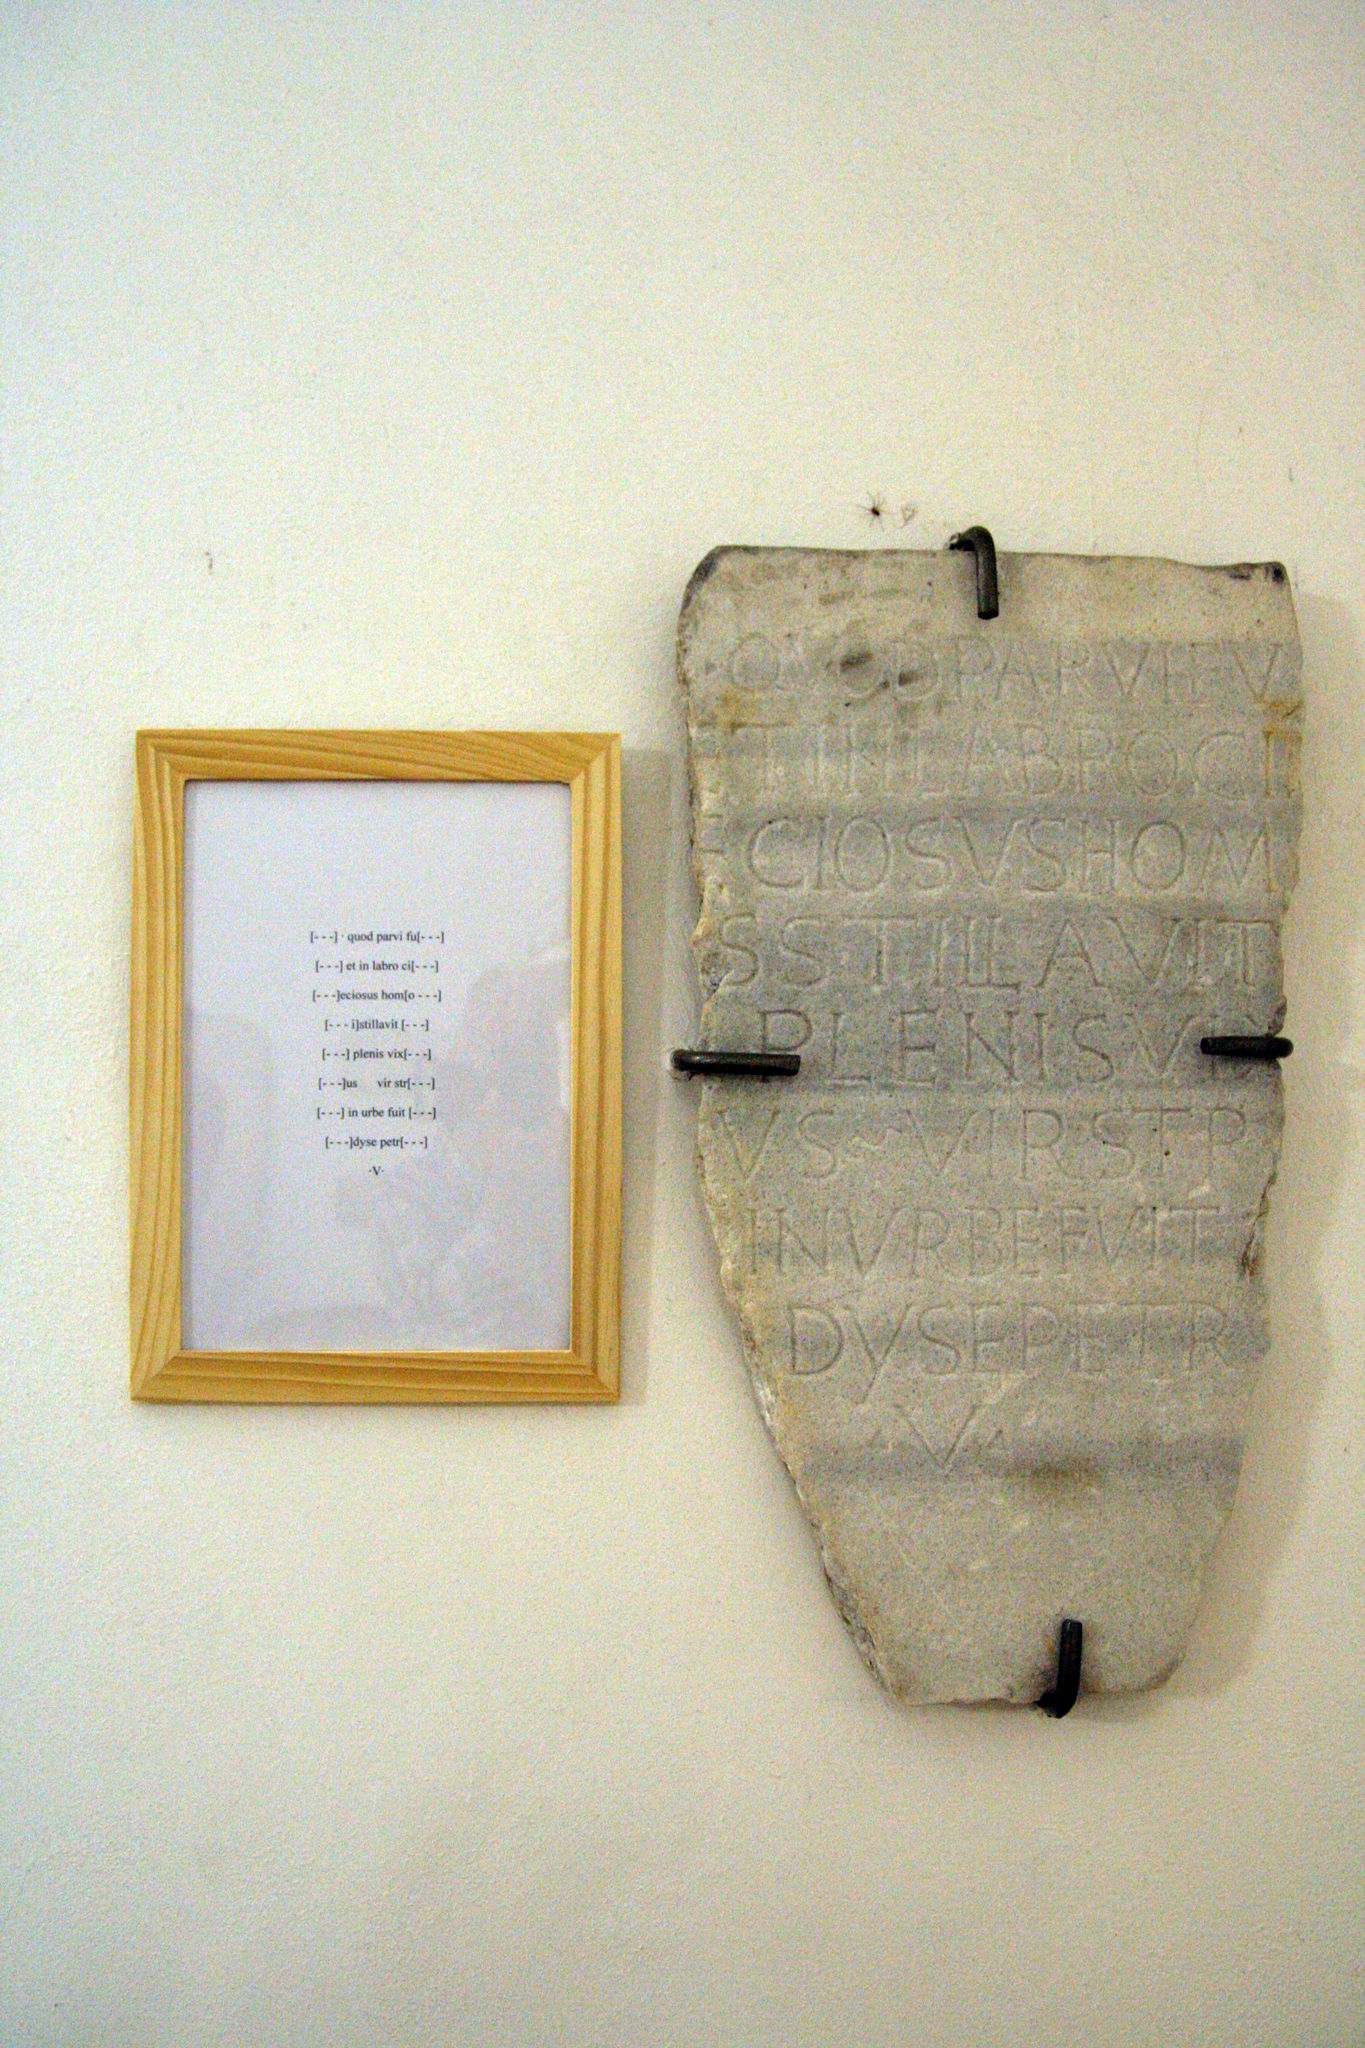 [- - -] · quod parvi fu[- - -]
[- - -] et in labro ci[- - -]
[- - -]eciosus hom[o - - -]
[- - - i]stillavit [- - -]
[- - -] plenis vix[- - -]
[- - -]us vir str[- - -]
[- - -] in urbe fuit [- - -]
[- - -]dyse petr[- - -]
·V·
·QVODPARVIFV
ECIOSVSHOM
SSTILLAVIT
PLENISVIX
VS VIRSTR
INVRBEFVIT
DYSEPETR
·V·